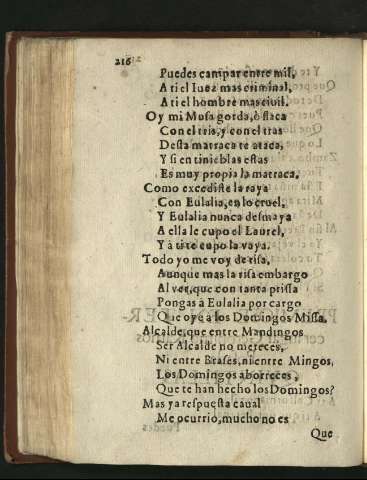 216
Puedes campar entre mil,
A ti el Iuez mas criminal,
A ti el hombre mas ciuil.
Oy mi Musa gorda, ò flaca
Con el tris, y con el tras
Desta matraca te ataca,
Y si en tinieblas estas
Es muy propia la matraca.
Como excediste la raya
Con Eulalia, en lo cruel,
Y Eulalia nunca desmaya
A ella le cupo el Laurel,
Y à ti te cupo la vaya.
Todo yo me voy de risa,
Aunque mas la risa embargo
Al ver, que con tanta prissa
Pongas à Eulalia por cargo
Que oye à los Domingos Missa.
Alcalde, que entre Mandingos
Ser Alcalde no mereces,
Ni entre Brases, ni entre Mingos,
Los Domingos aborreces,
Que te han hecho los Domingos?
Mas ya respuesta caual
Me ocurrio, mucho no es
Que